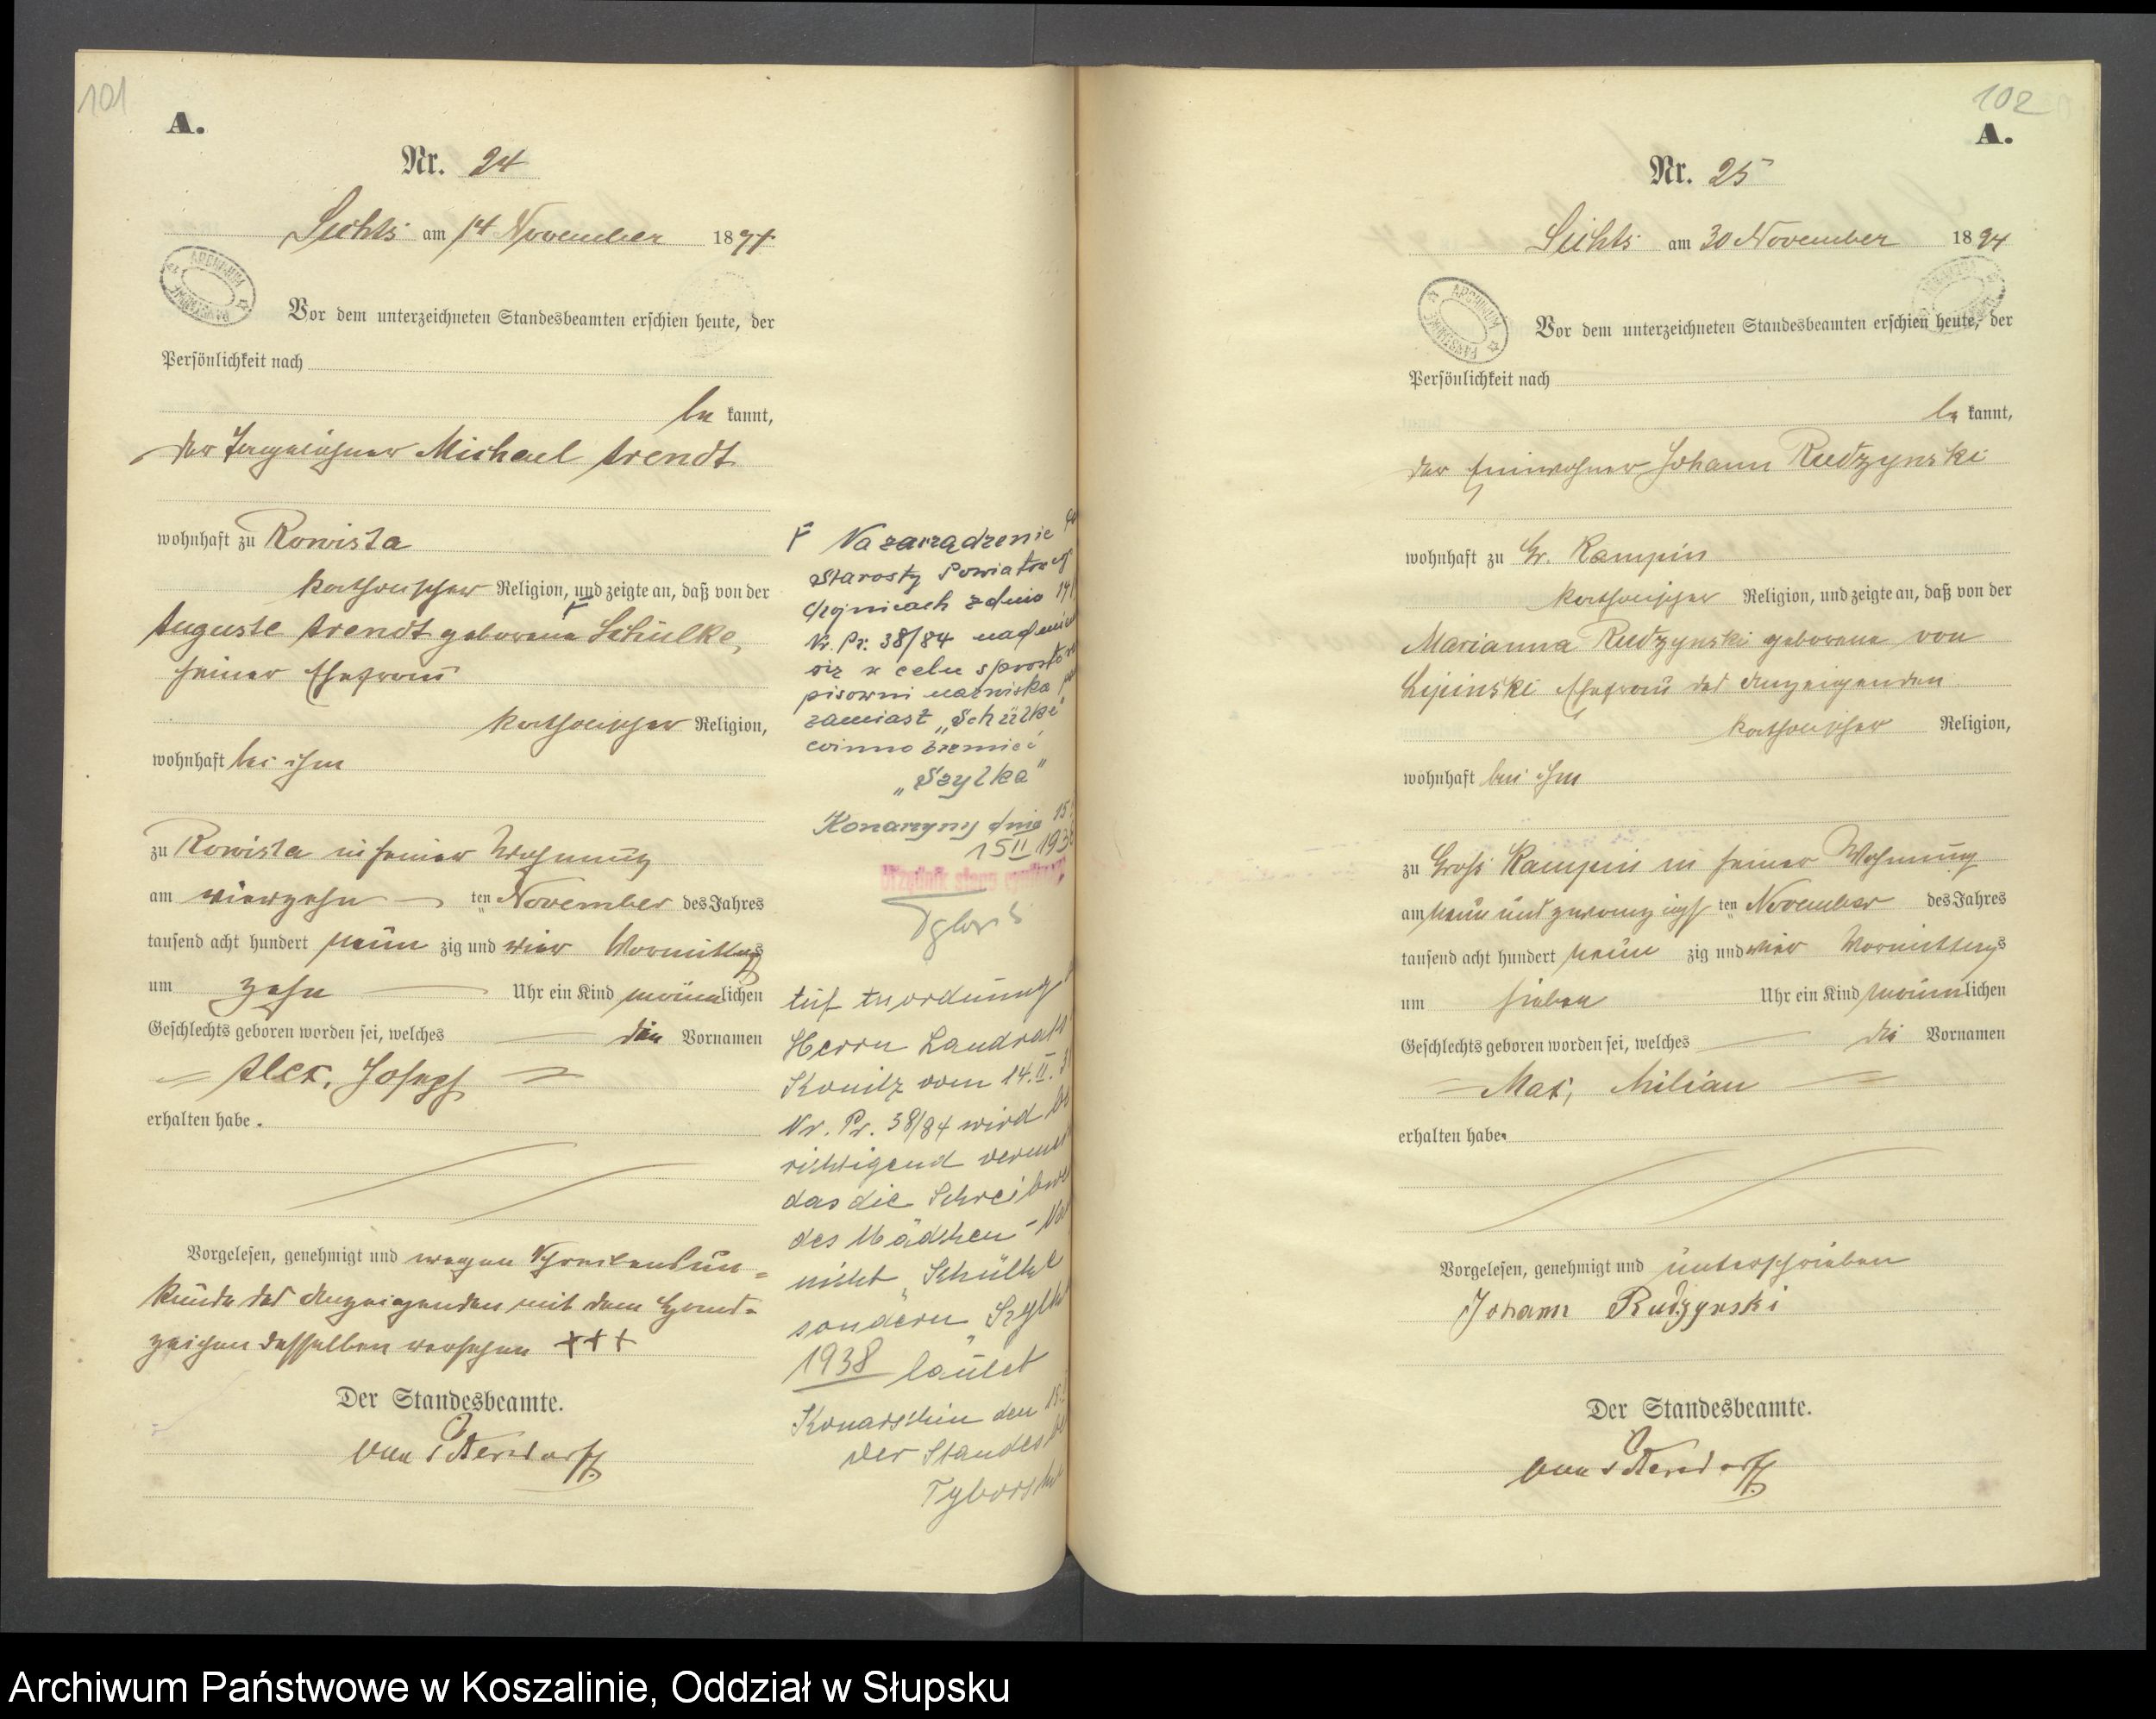 101
A.
Nr. 24
am 14 November 1894
ARCHIWUM PAŃSTWOWE
Vor dem unterzeichneten Standesbeamten erschien heute, der
Persönlichkeit nach
be kannt,
der Michael Arendt
wohnhaft zu Rowista
katholischer Religion, und zeigte an, daß von der
Auguste Arendt geborene Schülke,
seiner Ehefrau
katholischer Religion,
wohnhaft bei ihm
zu Rowista in seiner Wohnung
am vierzehn ten November des Jahres
tausend acht hundert neun zig und vier Vormittags
um zehn Uhr ein Kind männlichen
Geschlechts geboren worden sei, welches die Vornamen
Alex, Joseph
erhalten habe.
Vorgelesen, genehmigt und wegen Schreibensun-
kunde des Anzeigenden mit dem Hand-
zeichen desselben versehen +++
Der Standesbeamte.
Na zarządzenie
Starosty
Chojnicach z dnia
Nr. Pr. 38/84
się w celu
pisowni nazwiska
zamiast „Schülke"
winno brzmieć
„Szylka"
Konarzyny dnia
15 II 193
Urzędnik stanu cywilnego
Auf Anordnung
Herrn Landrats
Konitz vom 14. II.
Nr. Pr. 38/84 wird
richtigend
das die
des Mädchen-
nicht „Schülke
sondern „
1938 lautet
Konarschin den
Der
102
A.
Nr. 25
am 30 November 1894
ARCHIWUM PAŃSTWOWE
Vor dem unterzeichneten Standesbeamten erschien heute, der
Persönlichkeit nach
be kannt,
der Einwohner Johann Rudzynski
wohnhaft zu Gr. Kampin
katholischer Religion, und zeigte an, daß von der
Marianna Rudzynski geborene von
Lipinski Ehefrau des Anzeigenden
katholischer Religion,
wohnhaft bei ihm
zu Groß Kampin in seiner Wohnung
am neun und zwanzigs ten November des Jahres
tausend acht hundert neun zig und vier Vormittags
um sieben Uhr ein Kind männlichen
Geschlechts geboren worden sei, welches die Vornamen
Max, Milian
erhalten habe.
Vorgelesen, genehmigt und unterschrieben
Johann Rudzynski
Der Standesbeamte.
Archiwum Państwowe w Koszalinie, Oddział w Słupsku